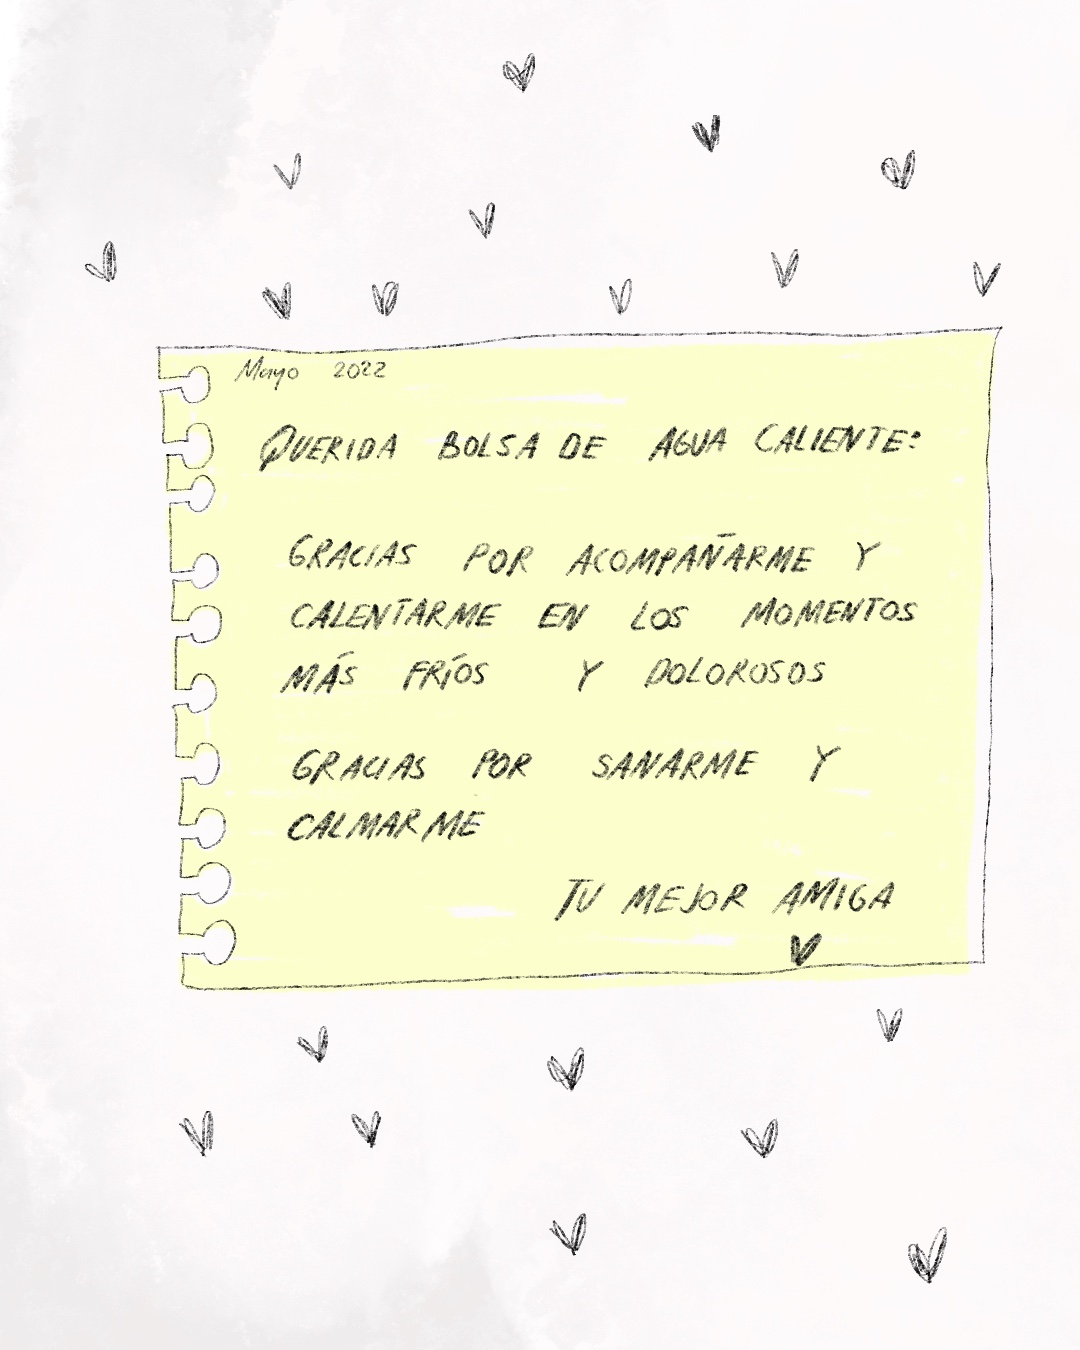 Mayo 2022
QUERIDA BOLSA DE AGUA CALIENTE:
GRACIAS POR ACOMPAÑARME Y
CALENTARME EN LOS MOMENTOS
MÁS FRÍOS Y DOLOROSOS
GRACIAS POR SANARME Y
CALMARME
TU MEJOR AMIGA